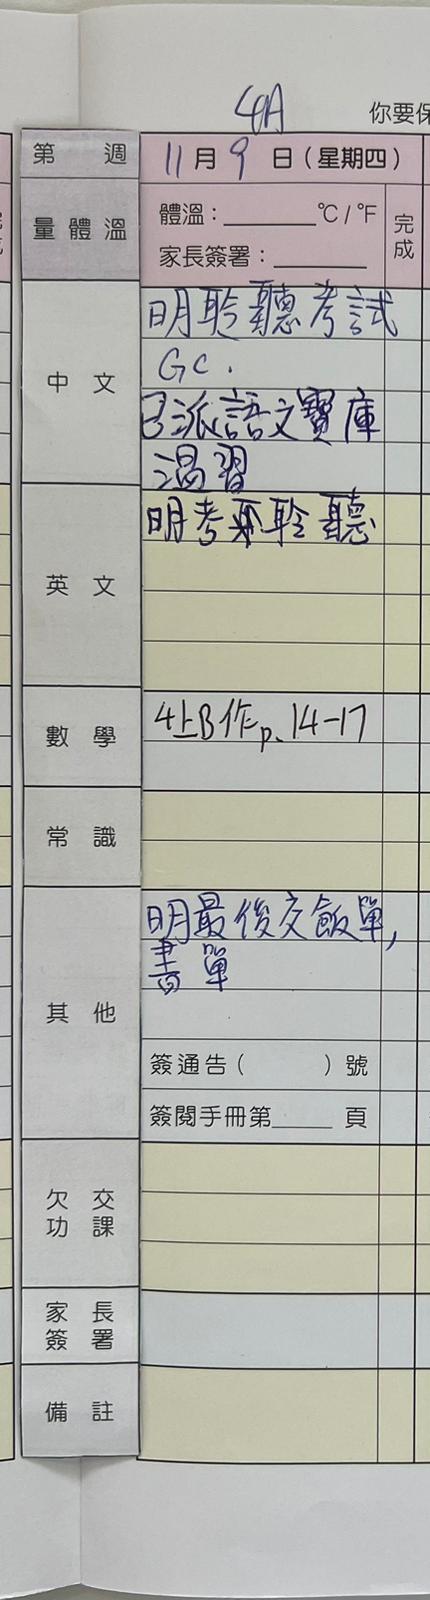 4A
你要保
第 週
11月9日(星期四)
量體溫
體溫:______°C/°F
家長簽署:______
完成
中文
明聆聽考試
GC.
已派語文寶庫
溫習
英文
明考聆聽
數學
4上B作p.14-17
常識
其他
明最後交飯單,
書單
簽通告( )號
簽閱手冊第____頁
欠交
功課
家長
簽署
備註